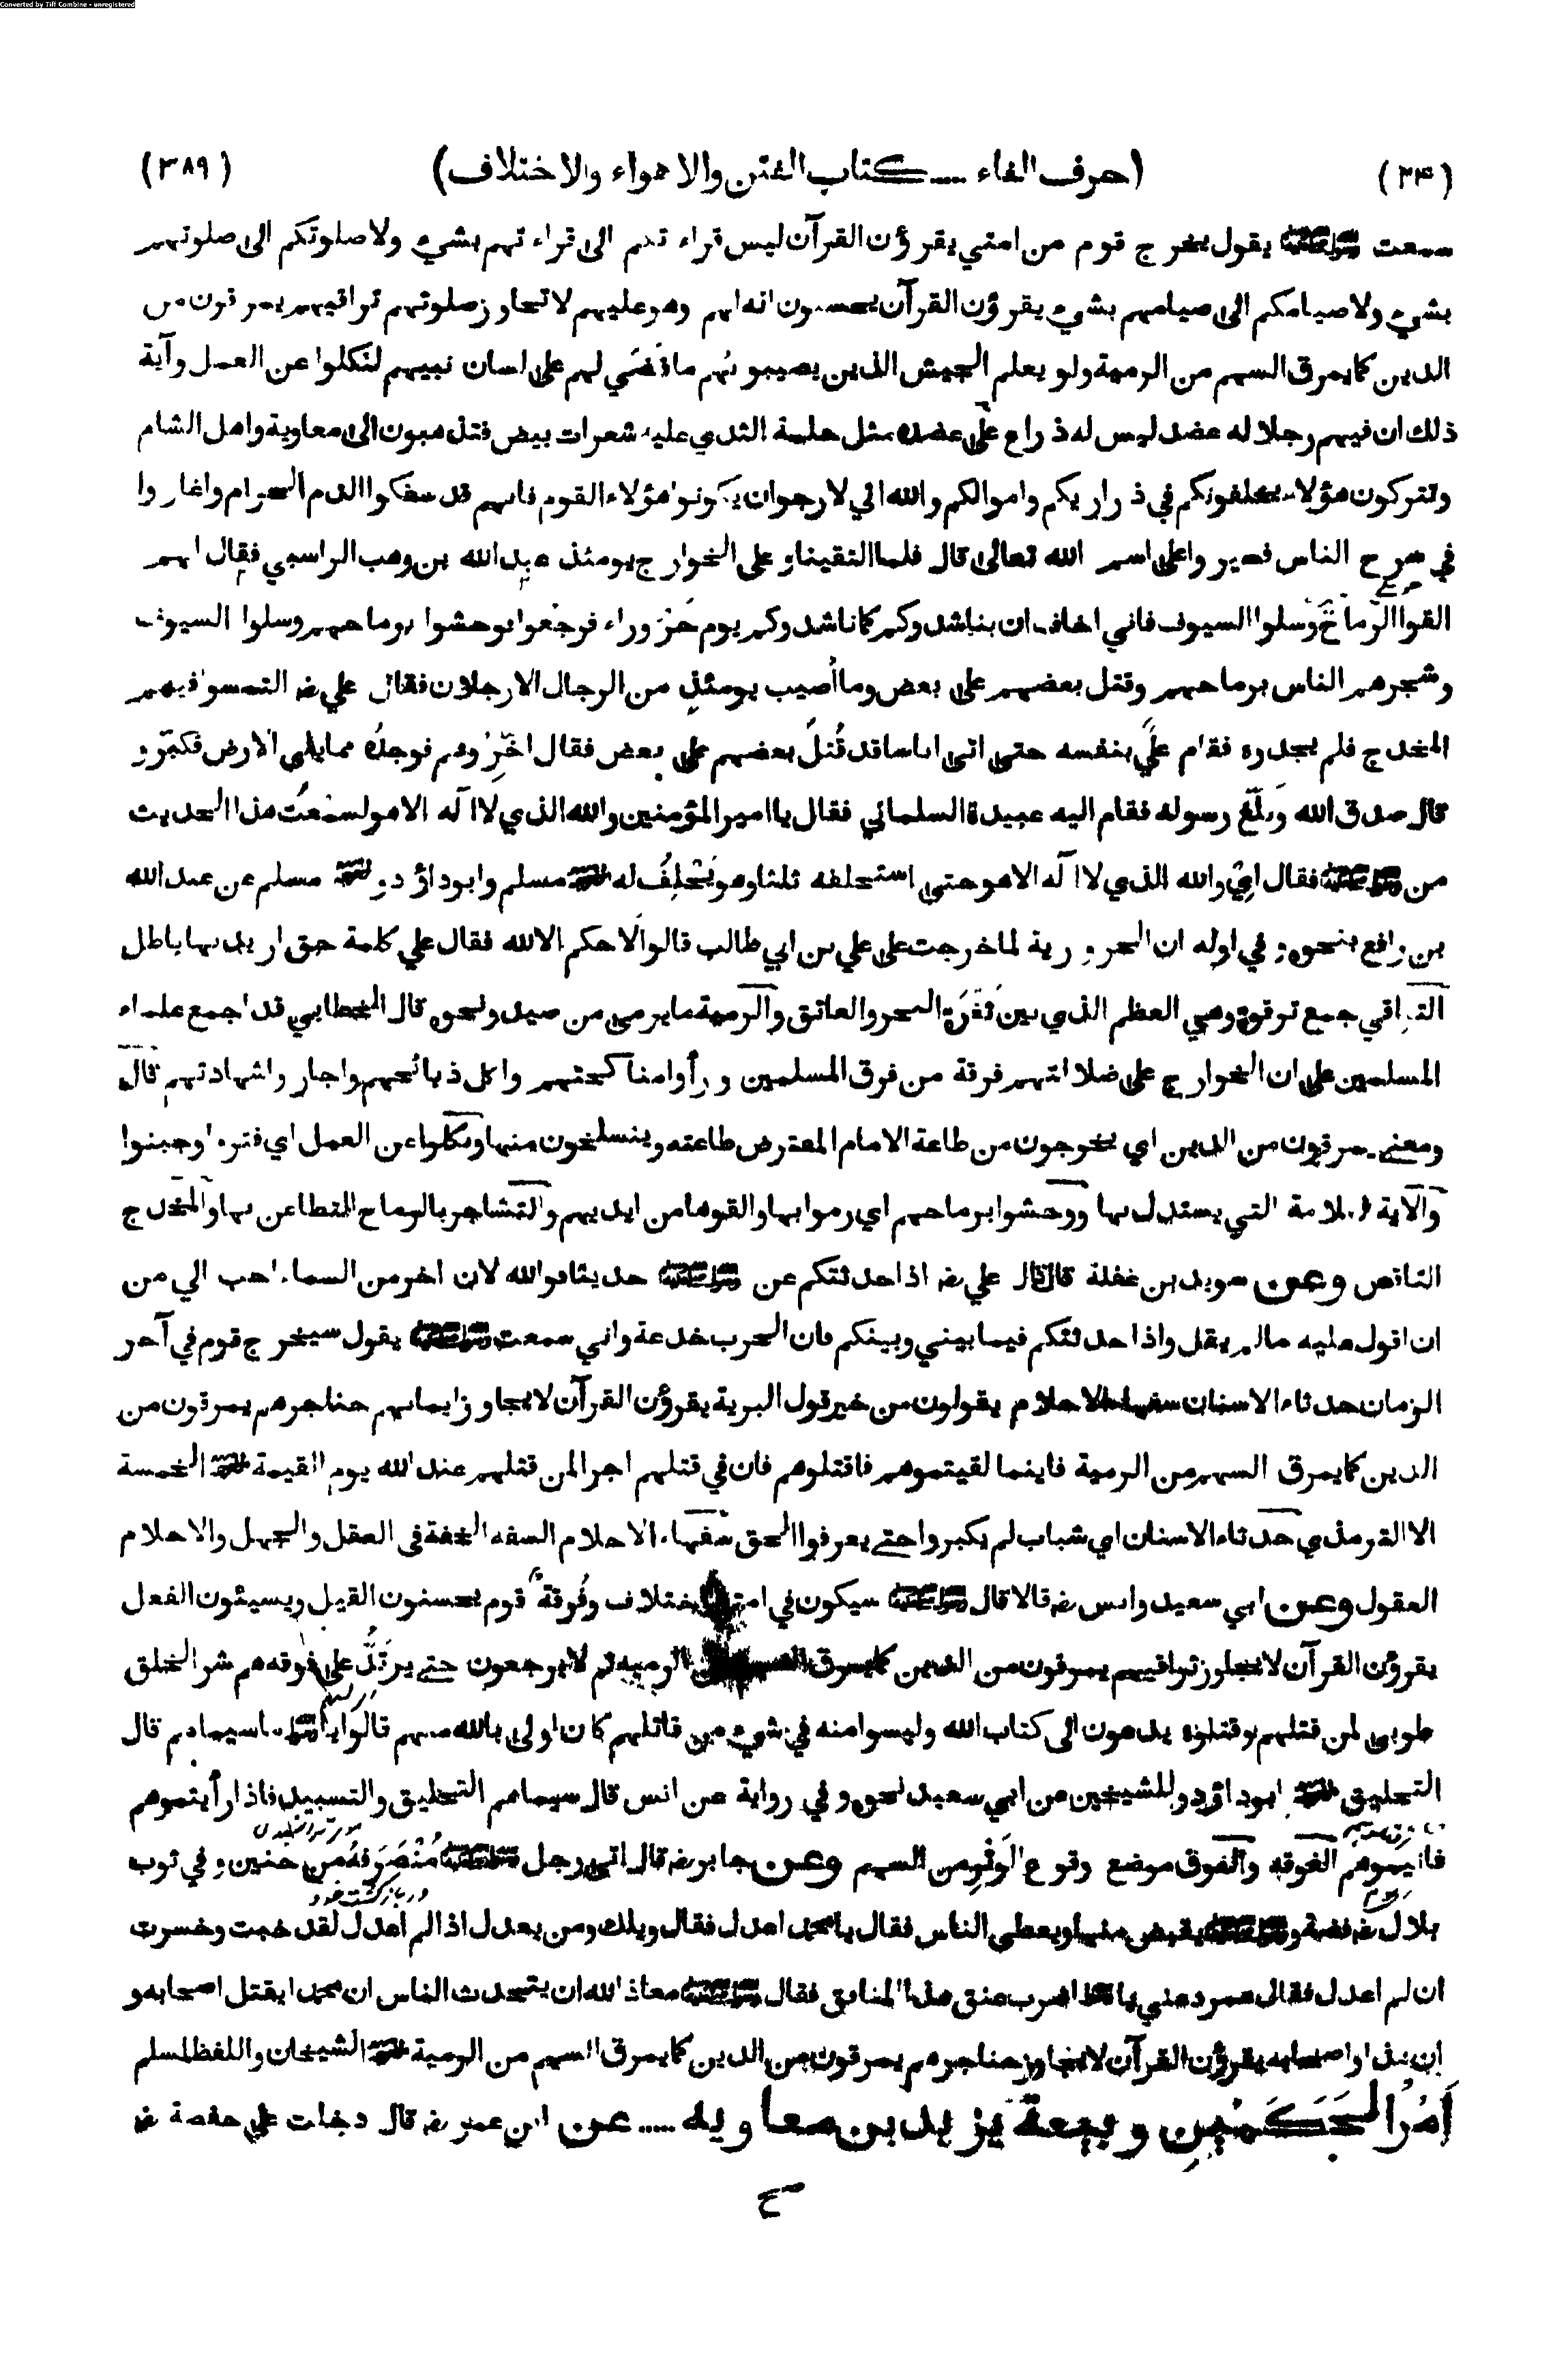 Converted by Tiff Combine - unregistered
(٣٤) (حرف الفاء ..... كتاب الفتن والاهواء والاختلاف) (٣٨٩)
سمعت ﷺ يقول يخرج قوم من امتي يقرؤن القرآن ليس قراءتكم الى قراءتهم بشيء ولا صلوتكم الى صلوتهم
بشيء ولا صيامكم الى صيامهم بشيء يقرؤن القرآن يحسبون انه لهم وهو عليهم لا تجاوز صلوتهم تراقيهم يمرقون من
الدين كما يمرق السهم من الرمية ولو يعلم الجيش الذين يصيبونهم ما قضي لهم على لسان نبيهم لنكلوا عن العمل وآية
ذلك ان فيهم رجلا له عضد ليس له ذراع على عضده مثل حلمة الثدي عليه شعرات بيض فتذهبون الى معاوية واهل الشام
وتتركون هؤلاء يخلفونكم في ذراريكم واموالكم والله اني لارجو ان يكونوا هؤلاء القوم فانهم قد سفكوا الدم الحرام واغاروا
في سرح الناس فسيروا على اسم الله تعالى قال فلما التقينا وعلى الخوارج يومئذ عبد الله بن وهب الراسبي فقال لهم
القوا الرماح وسلوا السيوف فاني اخاف ان يناشدوكم كما ناشدوكم يوم حروراء فرجعوا فوحشوا برماحهم وسلوا السيوف
وشجرهم الناس برماحهم وقتل بعضهم على بعض وما أصيب يومئذ من الرجال الا رجلان فقال علي رض التمسوا فيهم
المخدج فلم يجدوه فقام علي بنفسه حتى اتى اناسا قد قتل بعضهم على بعض فقال اخروهم فوجدوه مما يلي الارض فكبر و
قال صدق الله وبلغ رسوله فقام اليه عبيدة السلماني فقال يا امير المؤمنين والله الذي لا اله الا هو لسمعت هذا الحديث
من ﷺ فقال اي والله الذي لا اله الا هو حتى استحلفه ثلثا وهو يحلف له مسلم وابوداؤد و مسلم عن عبد الله
بن رافع بنحوه وفي اوله ان الحرورية لما خرجت على علي بن ابي طالب قالوا لا حكم الا لله فقال علي كلمة حق اريد بها باطل
التراقي جمع ترقوة وهي العظم الذي بين ثغرة النحر والعاتق والرمية ما يرمى من صيد ونحوه قال الخطابي قد اجمع علماء
المسلمين على ان الخوارج على ضلالتهم فرقة من فرق المسلمين ورأوا مناكحتهم واكل ذبائحهم واجاروا شهادتهم قال
ومعنى يمرقون من الدين اي يخرجون من طاعة الامام المفترض طاعته وينسلخون منها ونكلوا عن العمل اي فتروا وجبنوا
والآية العلامة التي يستدل بها ووحشوا برماحهم اي رموا بها والقوها من ايديهم والتشاجر بالرماح التطاعن بها والمخدج
الناقص وعن سويد بن غفلة قال قال علي رض اذا حدثتكم عن ﷺ حديثا فوالله لان اخر من السماء احب الي من
ان اقول عليه ما لم يقل واذا حدثتكم فيما بيني وبينكم فان الحرب خدعة واني سمعت ﷺ يقول سيخرج قوم في آخر
الزمان حدثاء الاسنان سفهاء الاحلام يقولون من خير قول البرية يقرؤن القرآن لا يجاوز ايمانهم حناجرهم يمرقون من
الدين كما يمرق السهم من الرمية فاينما لقيتموهم فاقتلوهم فان في قتلهم اجرا لمن قتلهم عند الله يوم القيمة الخمسة
الا الترمذي حدثاء الاسنان اي شباب لم يكبروا حتى يعرفوا الحق سفهاء الاحلام السفه الخفة في العقل والجهل والاحلام
العقول وعن ابي سعيد وانس رض قالا قال ﷺ سيكون في امتي اختلاف وفرقة قوم يحسنون القيل ويسيئون الفعل
يقرؤن القرآن لا يجاوز تراقيهم يمرقون من الدين كما يمرق السهم من الرمية ثم لا يرجعون حتى يرتد على فوقه هم شر الخلق
طوبى لمن قتلهم وقتلوه يدعون الى كتاب الله وليسوا منه في شيء من قاتلهم كان اولى بالله منهم قالوا يا ﷺ ما سيماهم قال
التحليق ابوداؤد وللشيخين عن ابي سعيد نحوه وفي رواية عن انس قال سيماهم التحليق والتسبيد فاذا رأيتموهم
فانيموهم الفوقه والفوق موضع وقوع الوتر من السهم وعن جابر رض قال اتى رجل ﷺ منصرفه من حنين وفي ثوب
بلال رض فضة و ﷺ يقبض منها ويعطي الناس فقال يا محمد اعدل فقال ويلك ومن يعدل اذا لم اعدل لقد خبت وخسرت
ان لم اعدل فقال عمر دعني يا ﷺ اضرب عنق هذا المنافق فقال ﷺ معاذ الله ان يتحدث الناس ان محمدا يقتل اصحابه و
ان هذا واصحابه يقرؤن القرآن لا يجاوز حناجرهم يمرقون من الدين كما يمرق السهم من الرمية الشيخان واللفظ لمسلم
امر الحكمين وبيعة يزيد بن معاويه ..... عن ابن عمر رض قال دخلت علي حفصة رض